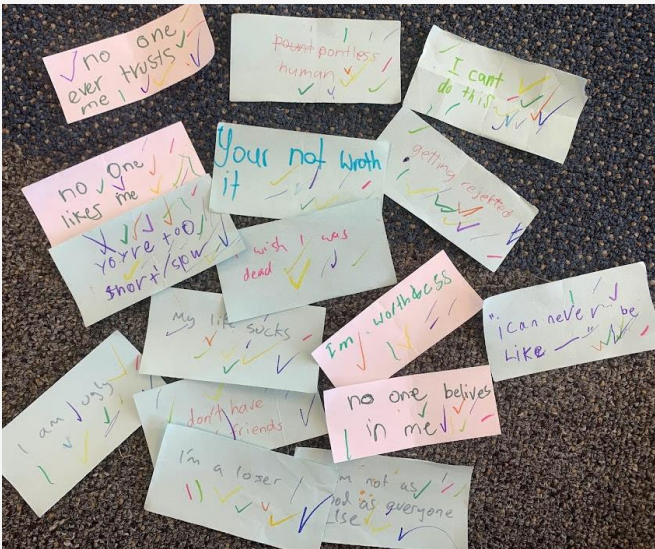 no one
ever trusts
me
pount pontless
human
I cant
do this
no One
likes me
Your not wroth
it
getting rejefted
yoyre too
short/slow
wish I was
dead
My life sucks
I'm worthless
"i can never be
Like —"
I am ugly
don't have
friends
no one belives
in me
I'm a loser
m not as
od as everyone
lse